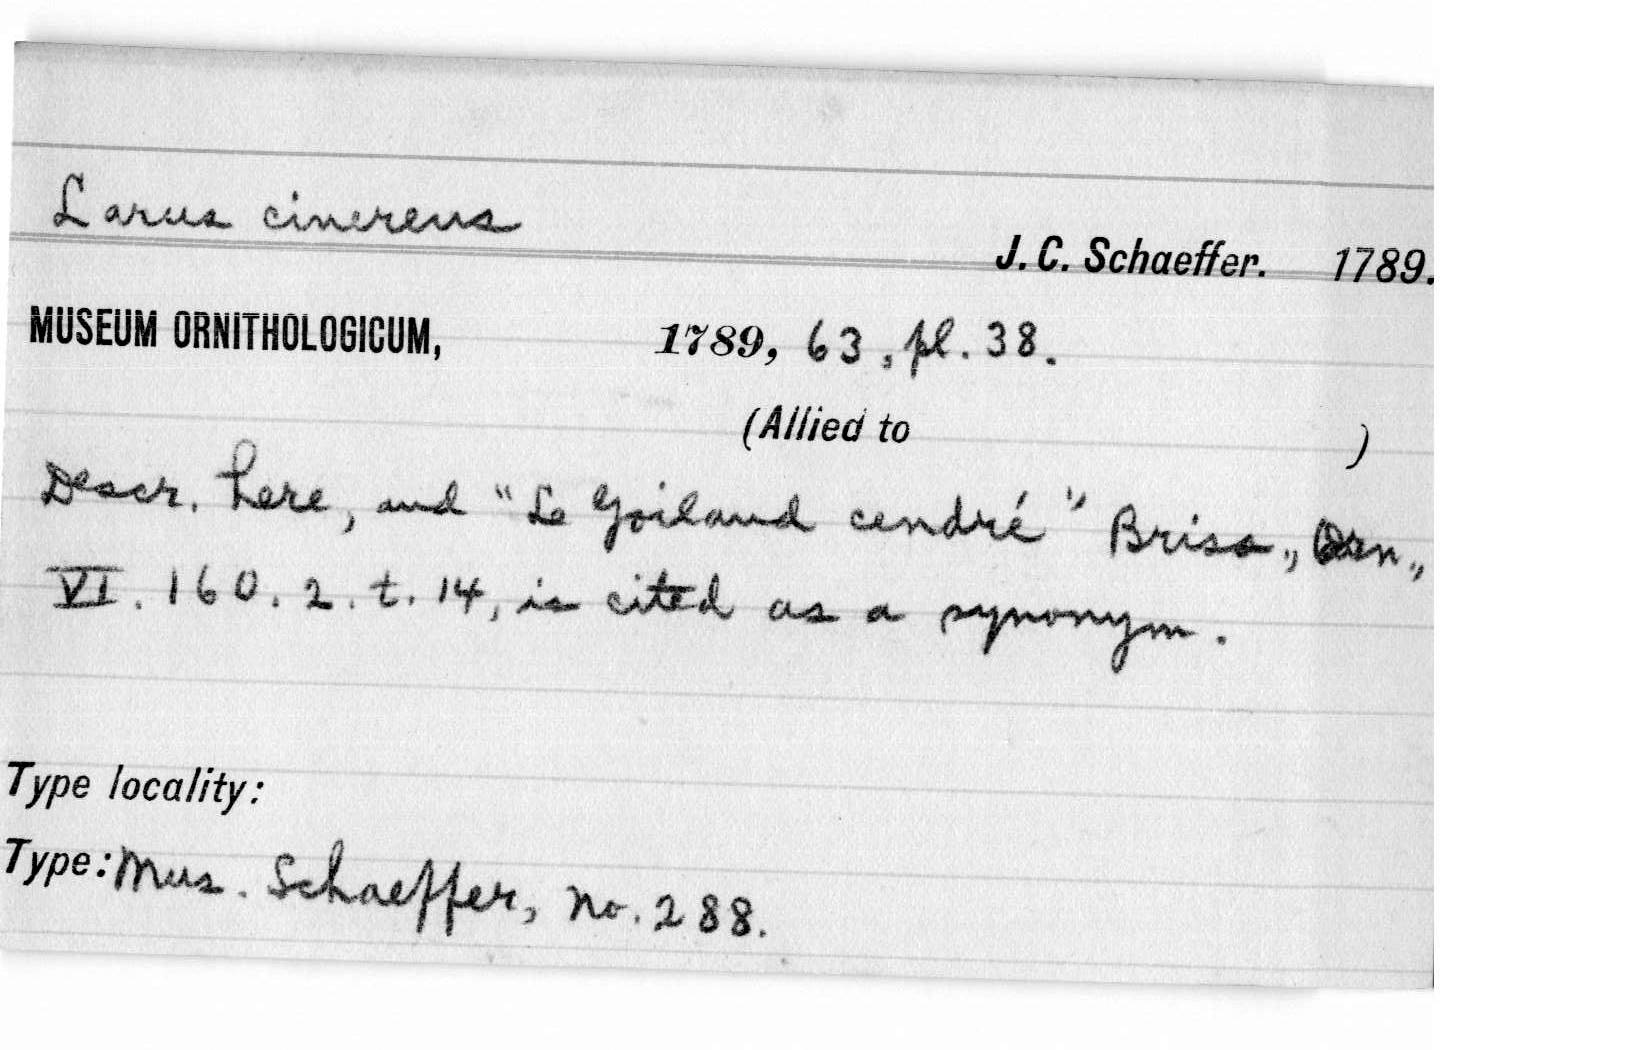 Larus cinereus
J. C. Schaeffer. 1789.
MUSEUM ORNITHOLOGICUM, 1789, 63, pl. 38.
(Allied to )
Descr. here, and "Le Goiland cendré" Briss., Orn.,
VI. 160. 2. t. 14, is cited as a synonym.
Type locality:
Type: Mus. Schaeffer, no. 288.